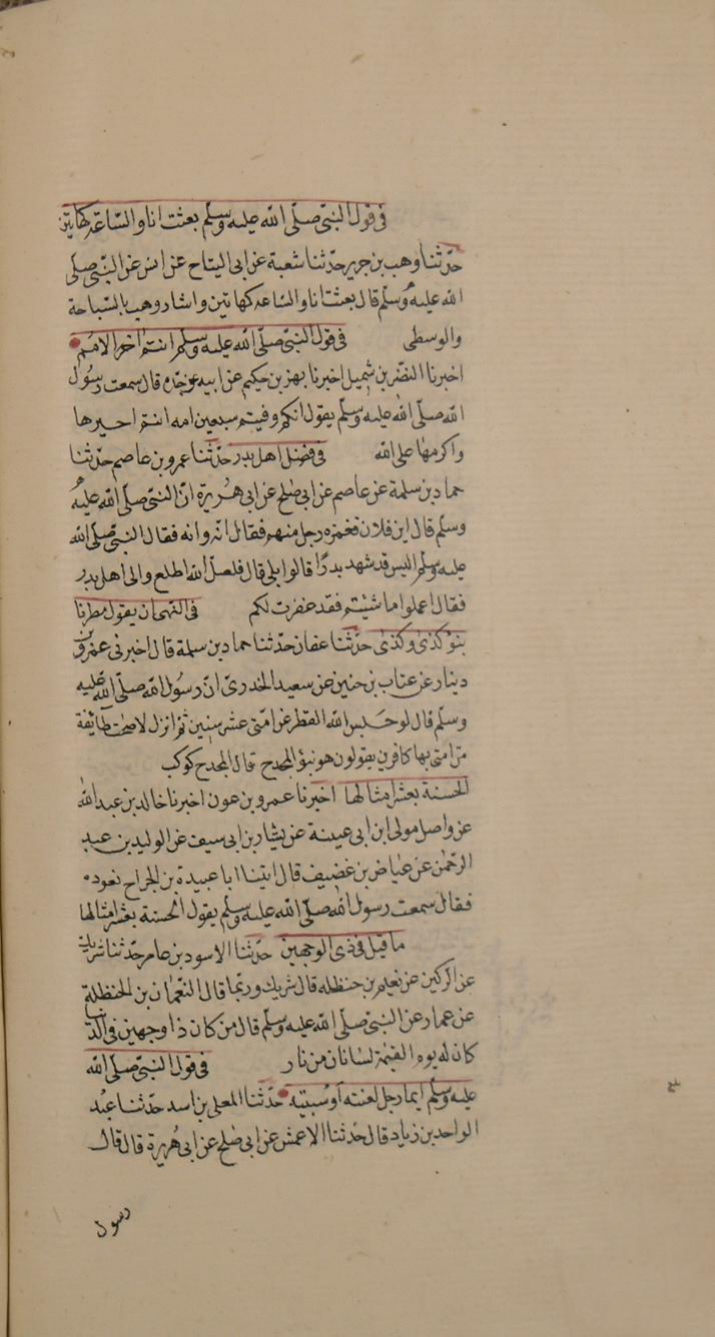 في قول النبي صلى الله عليه وسلم بعثت انا والساعة كهاتين
حدثنا وهب بن جرير حدثنا شعبة عن ابي التياح عن انس عن النبي صلى
الله عليه وسلم قال بعثت انا والساعة كهاتين واشار وهب بالسباحة
والوسطى في قول النبي صلى الله عليه وسلم انتم اخر الامم
اخبرنا النضر بن شميل اخبرنا بهز بن حكيم عن ابيه عن جده قال سمعت رسول
الله صلى الله عليه وسلم يقول انكم وفيتم سبعين امه انتم اخيرها
واكرمها على الله في فضل اهل بدر حدثنا عمرو بن عاصم حدثنا
حماد بن سلمة عن عاصم عن ابي صلح عن ابي هريرة ان النبي صلى الله عليه
وسلم قال ابن فلان فغمزه رجل منهم فقال انه وانه فقال النبي صلى الله
عليه وسلم اليس قد شهد بدرا قالوا بلى قال فلعل الله اطلع والى اهل بدر
فقال اعملوا ما شئتم فقد غفرت لكم في النهمان يقول مطرنا
بنو كذى وكذى حدثنا عفان حدثنا حماد بن سلمة قال اخبرني عمرو بن
دينار عن عتاب بن حنين عن سعيد الخدري ان رسول الله صلى الله عليه
وسلم قال لو حبس الله القطر عن امتي عشر سنين ثم انزل لاصبحت طائفة
من امتي بها كافرين يقولون هو بنؤ المجدح قال المجدح كوكب
الحسنة بعشر امثالها اخبرنا عمرو بن عون اخبرنا خالد بن عبد الله
عن واصل مولى ابن ابي عيينة عن بشار بن ابي سيف عن الوليد بن عبد
الرحمن عن عياض بن غضيف قال اتينا ابا عبيدة بن الجراح نعوده
فقال سمعت رسول الله صلى الله عليه وسلم يقول الحسنة بعشر امثالها
ما قيل في ذي الوجهين حدثنا الاسود بن عامر حدثنا شريك
عن الركين عن نعيم بن حنظله قال شريك وربما قال النعمان بن الحنظلة
عن عمار عن النبي صلى الله عليه وسلم قال من كان ذا وجهين في الدنيا
كان له يوم القيمة لسانان من نار في قول النبي صلى الله
عليه وسلم ايما رجل لعنته او سببته حدثنا المعلى بن اسد حدثنا عبد
الواحد بن زياد قال حدثنا الاعمش عن ابي صلح عن ابي هريرة قال قال
رسول